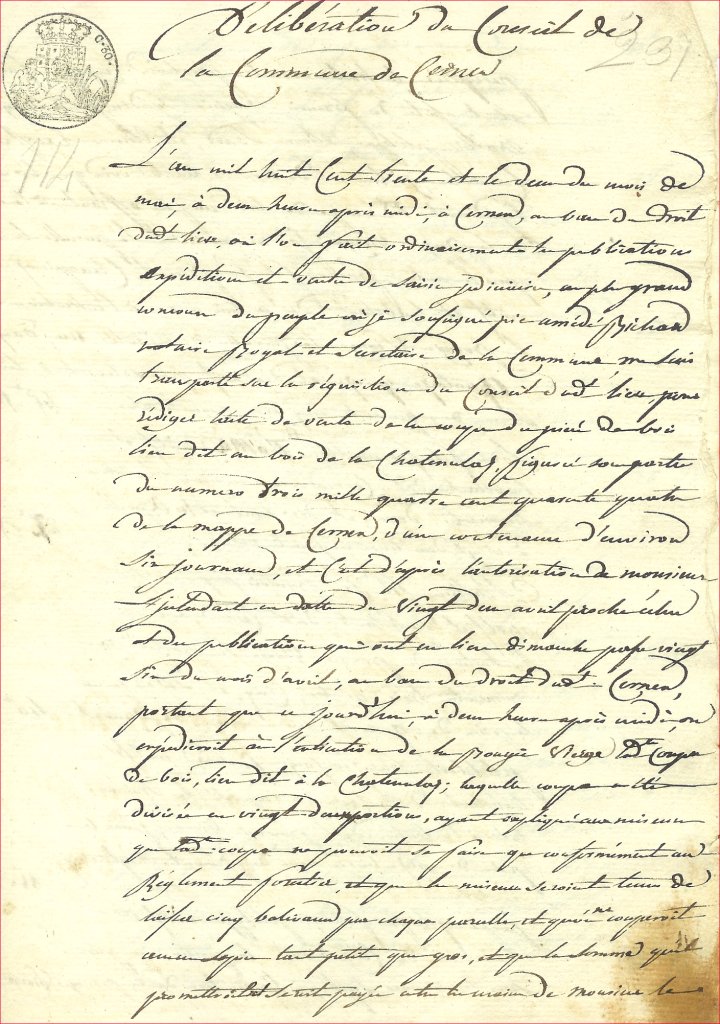 C. 30.
231
Délibération du Conseil de
la Commune de Cernex
114
L'an mil huit Cent trente et le deux du mois de
mai, à deux heures après midi, à Cernex, au banc du Droit
dud.t lieu, où l'on fait ordinairement les publications
expéditions et vente de saisie judiciaire, au plus grand
concours du peuple où je soussigné amédé
notaire Royal et Secretaire de la Commune, me suis
transporté sur la réquisition du Conseil dud.t lieu, pour
rédiger acte de vente de la coupe du de bois
lieu dit au bois de la Chatenelaz, figuré sous partie
du numero trois mille quatre cent quarante quatre
de la mappe de Cernex, d'une contenance d'environ
six journaux, et c'est d'après l'autorisation de monsieur
L'jntendant en datte du vingt deux avril proche échu
et des publications qui ont eu lieu dimanche passé vingt
six du mois d'avril, au banc du droit dud.t Cernex,
portant que ce jourd'hui, à deux heures après midi, on
expédieroit à l'extinction de la Bougie Vierge lad.t coupe
de bois, lieu dit à la Chatenelaz; laquelle coupe a été
divisée en vingt deux portions, ayant expliqué aux miseurs
que lad.t coupe ne pouvoit se faire que conformément au
Réglement forestier, et que les miseurs seroient tenus de
laisser cinq baliveaux par chaque parcelle, et qu'on ne couperoit
aucun sapin tant petit que gros, et que la somme qu'ils
promettroient seroit payée entre les mains de monsieur le